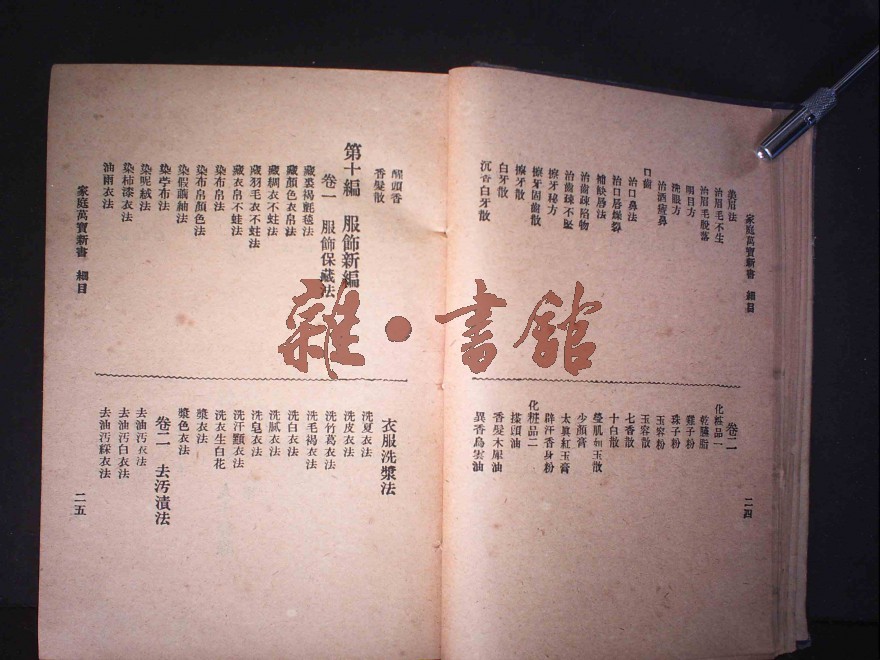 家庭萬寶新書 細目
美眉法
治眉毛不生
治眉毛脫落
明目方
洗眼方
治酒皶鼻
口齒
治口鼻法
治口唇燥裂
補缺唇法
治齒疎陷物
治齒疎不堅
擦牙秘方
擦牙固齒散
擦牙散
白牙散
沉香白牙散
卷二
化粧品一
乾臙脂
雞子粉
珠子粉
玉容粉
玉容散
七香散
十白散
瑩肌如玉散
少顏膏
太眞紅玉膏
辟汗香身粉
化粧品二
搽頭油
香髮木犀油
異香烏雲油
二四
醒頭香
香髮散
第十編 服飾新編
卷一 服飾保藏法
藏裘褐氈毯法
藏顏色衣帛法
藏綢衣不蛀法
藏羽毛衣不蛀法
藏衣帛不蛙法
染布帛法
染布帛顏色法
染假繭紬法
染苧布法
染呢絨法
染柿漆衣法
油雨衣法
衣服洗漿法
洗夏衣法
洗皮衣法
洗竹葛衣法
洗毛褐衣法
洗白衣法
洗膩衣法
洗皂衣法
洗汗顆衣法
洗衣生白花
漿衣法
漿色衣法
卷二 去汚漬法
去油汚衣法
去油汚白衣法
去油汚綵衣法
家庭萬寶新書 細目
二五
雜·書館